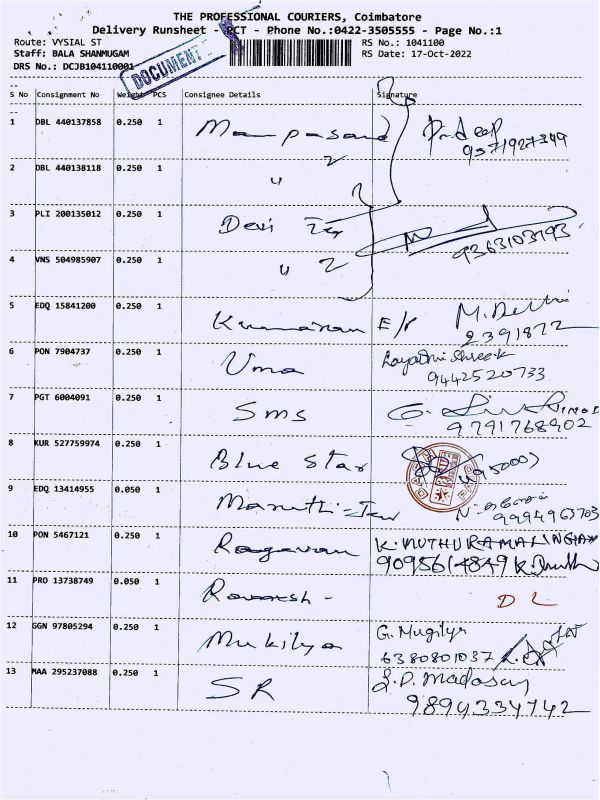 THE PROFESSIONAL COURIERS, Coimbatore
Delivery Runsheet - PCT - Phone No.:0422-3505555 - Page No.:1
Route: VYSIAL ST RS No.: 1041100
Staff: BALA SHANMUGAM RS Date: 17-Oct-2022
DRS No.: DCJB104110001
DOCUMENT
S No Consignment No Weight PCS Consignee Details Signature
1 DBL 440137858 0.250 1 Manpasand Pr.deep
9571927349
2 DBL 440138118 0.250 1 "
3 PLI 200135012 0.250 1 Devi Tex
9363103793
4 VNS 504985907 0.250 1 " 2
5 EDQ 15841200 0.250 1 Kumaran E/P M.Delhi
2391872
6 PON 7904737 0.250 1 Uma
9442520733
7 PGT 6004091 0.250 1 SMS G.
9791768902
8 KUR 527759974 0.250 1 Blue Star
9 EDQ 13414955 0.050 1 Maruthi
9994963703
10 PON 5467121 0.250 1 Ragavan K.MUTHURAMALINGAM
9095614849 K.Muth
11 PRO 13738749 0.050 1 Ramesh - D L
12 GGN 97805294 0.250 1 Mukilya G. Mugilya
6380801037
13 MAA 295237088 0.250 1 SR S.P. Madasay
9894334742